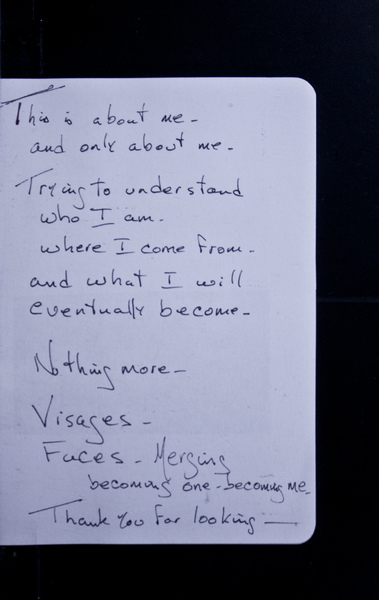 This is about me -
and only about me -
Trying to understand
who I am.
where I come from -
and what I will
eventually become -
Nothing more -
Visages -
Faces - Merging
becoming one - becoming me -
Thank you for looking —